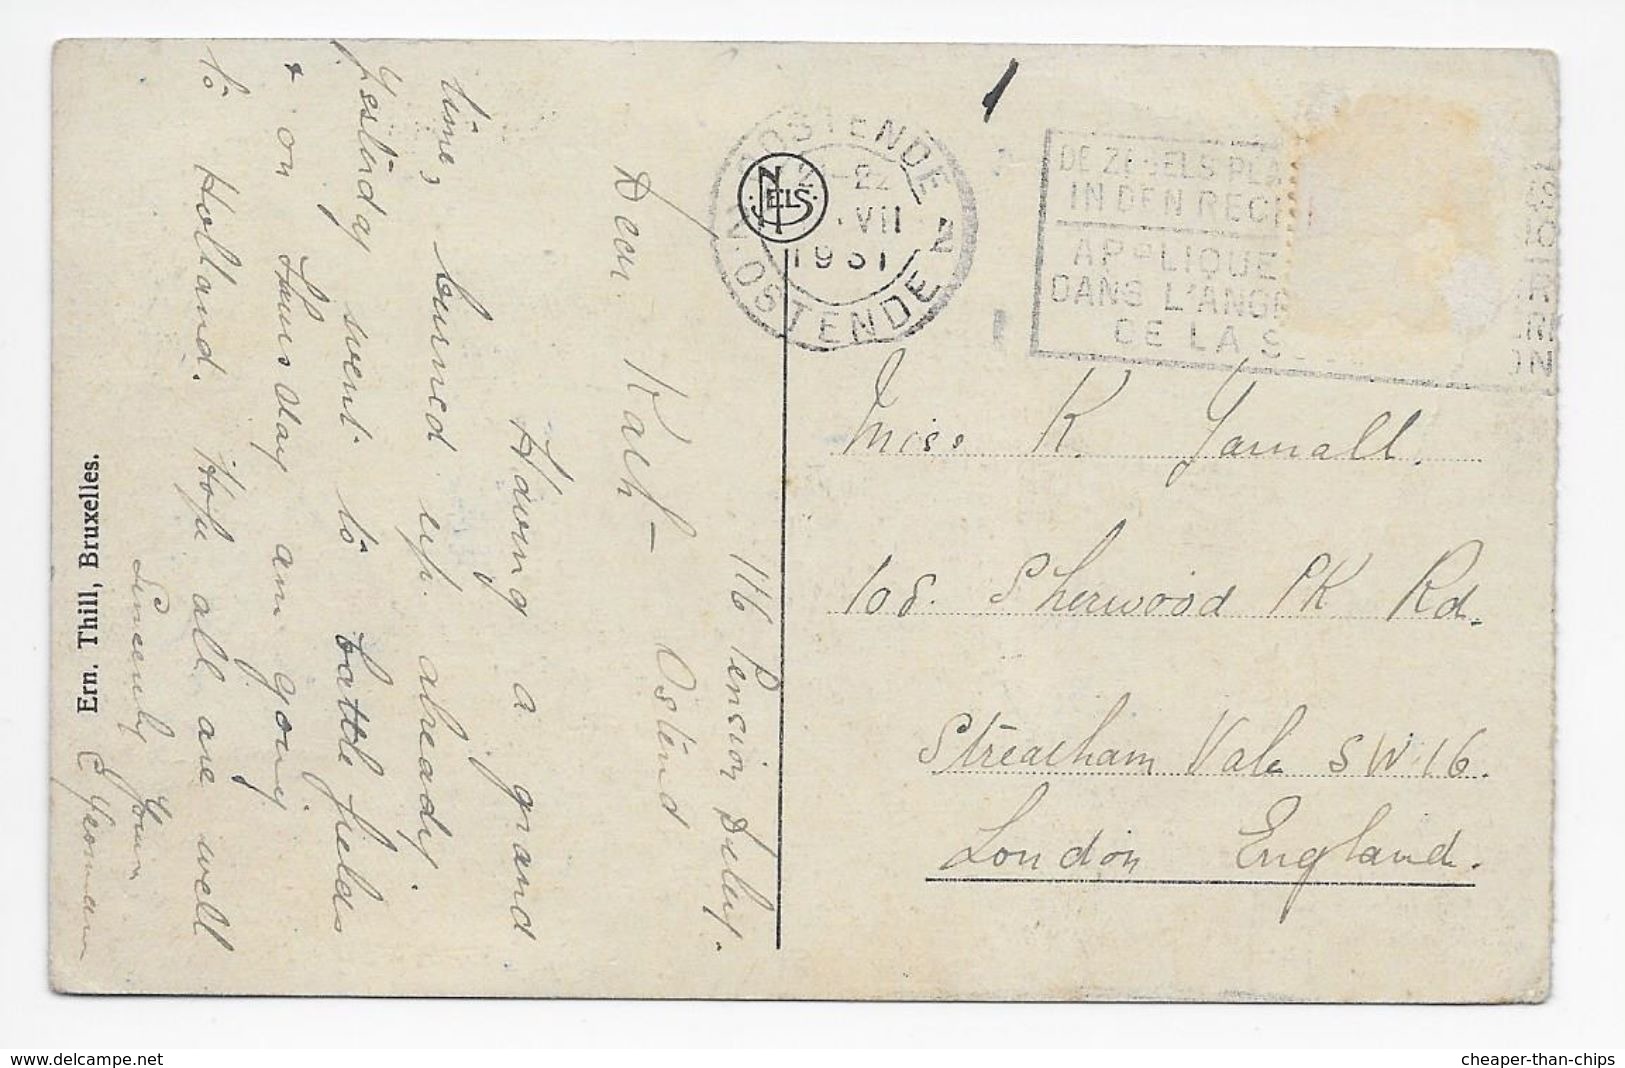 116 Pension
Ostend
Dear Kath -
Having a grand
time, burned up already.
Yesterday went to battle fields
+ on Thursday am going
to Holland. Hope all are well
Sincerely Yours
Ern. Thill, Bruxelles.
NELS
OOSTENDE
VII
1931
OSTENDE
DE ZEGELS PLA
IN DEN RECH
APPLIQUE
DANS L'ANG
DE LA S
Miss K. Yarnall.
108. Sherwood PK Rd.
Streatham Vale SW16.
London England.
www.delcampe.net
cheaper-than-chips